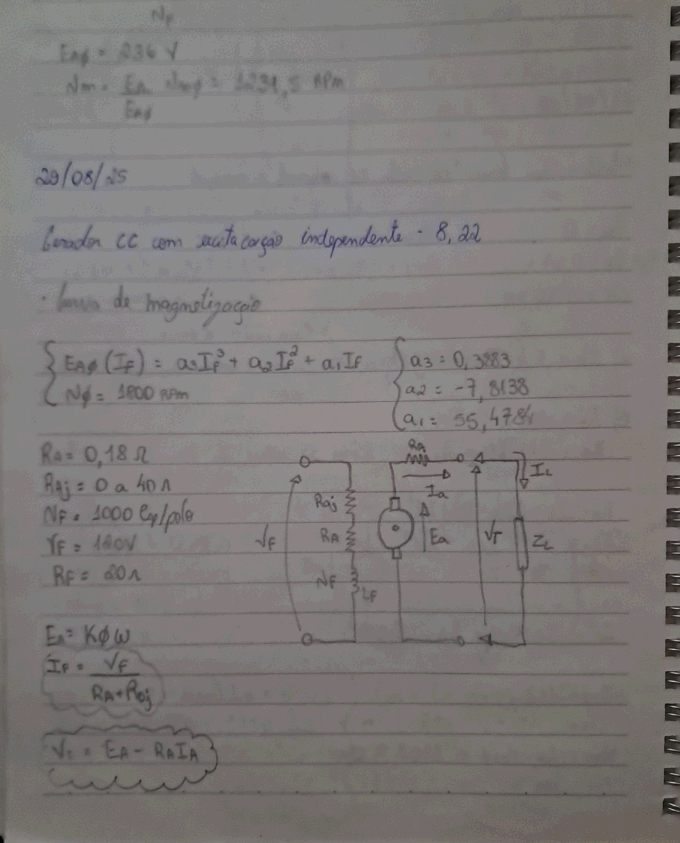 NF
EAφ = 236 V
Nm = EA Nmφ = 1231,5 RPm
EAφ
29/08/25
Gerador CC com excitacação independente - 8,22
· Curva de magnetização
EAφ (IF) = a3IF³ + a2IF² + a1IF
Nφ = 1800 RPm
a3 = 0,3883
a2 = -7,8138
a1 = 55,4784
RA = 0,18 Ω
RAj = 0 a 40 Ω
NF = 1000 Esp/polo
VF = 120V
RF = 20 Ω
EA = KφW
IF = VF
RA + Raj
Vt = EA - RAIA
Raj
RA
NF
LF
VF
Ra
Ia
Ea
VT
IL
ZL